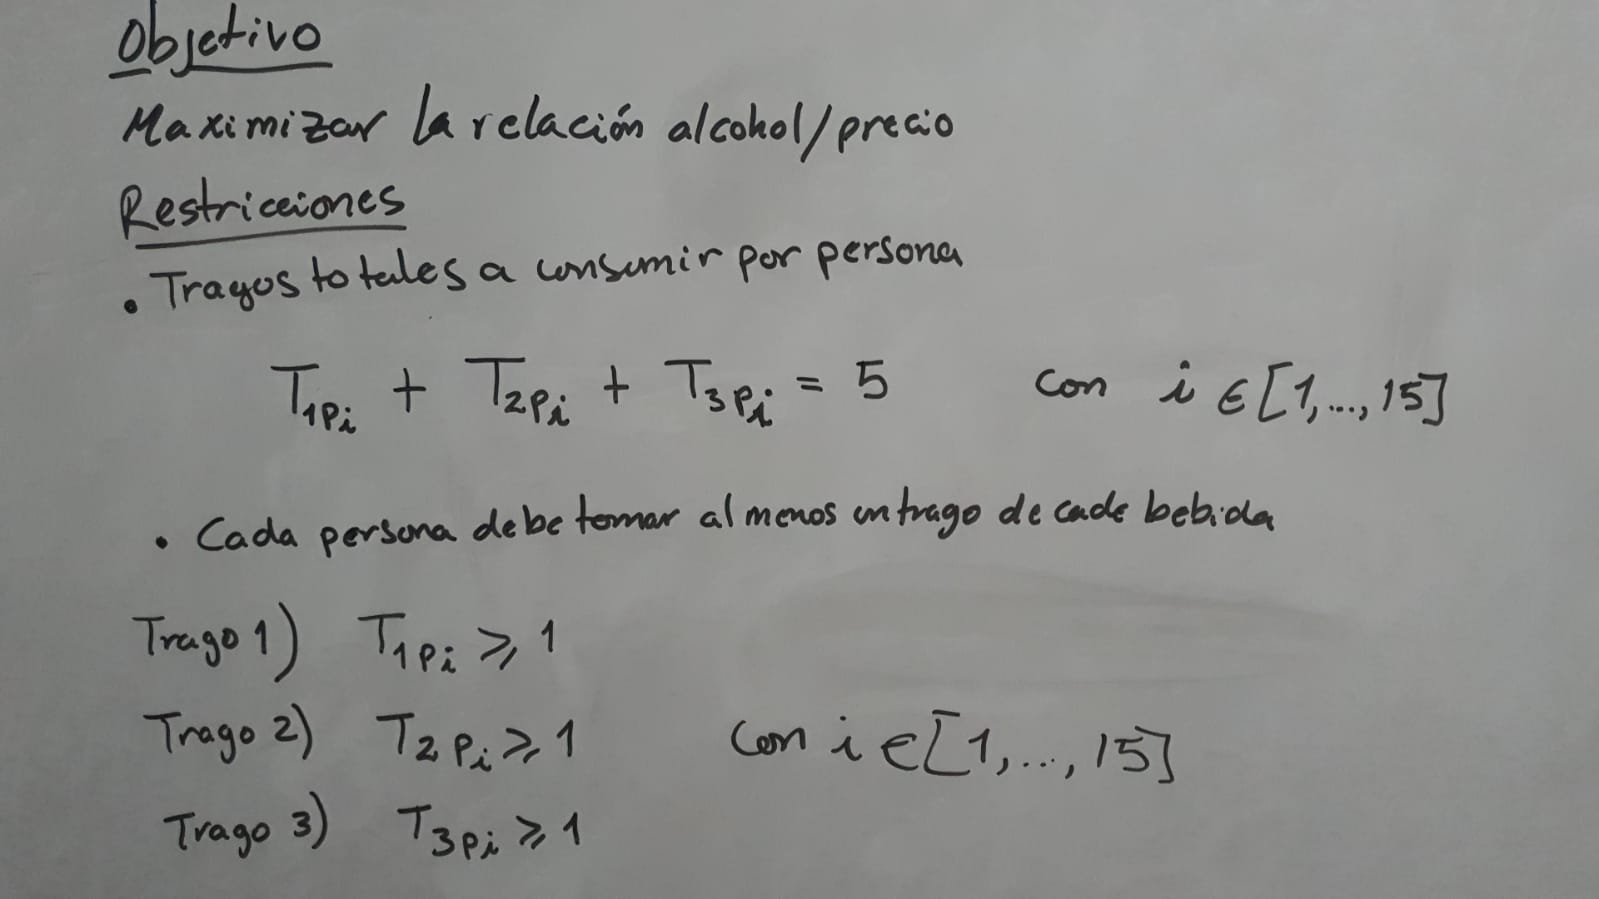 Objetivo
Maximizar la relación alcohol/precio
Restricciones
• Tragos totales a consumir por persona
T1Pi + T2Pi + T3Pi = 5 con i ∈ [1,...,15]
• Cada persona debe tomar al menos un trago de cada bebida
Trago 1) T1Pi ⩾ 1
Trago 2) T2Pi ⩾ 1 con i ∈ [1,...,15]
Trago 3) T3Pi ⩾ 1